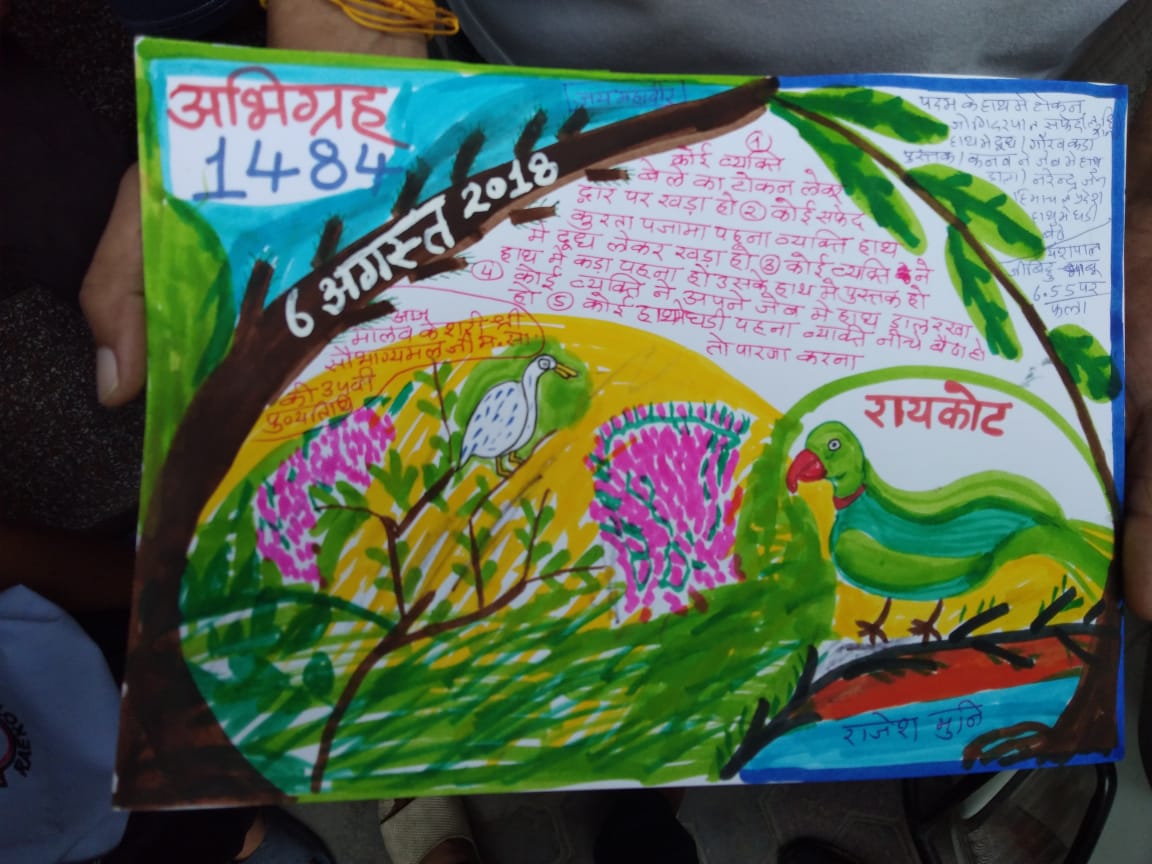 अभिग्रह
1484
जय महावीर
6 अगस्त 2018
①
कोई व्यक्ति
केले का टोकन लेकर
द्वार पर खड़ा हो ② कोई सफेद
कुरता पजामा पहना व्यक्ति हाथ
में दूध लेकर खड़ा हो ③ कोई व्यक्ति ने
हाथ में कड़ा पहना हो उसके हाथ मे पुस्तक हो
④ कोई व्यक्ति ने अपने जेब में हाथ डाल रखा
हो ⑤ कोई हाथ में घडी पहना व्यक्ति नीचे बैठा हो
तो पारणा करना
पदम के हाथ मे टोकन
जोगिंदरपाल सफेद
हाथ मे दूध / गौरव कडा
पुस्तक / कनव ने जेब मे हाथ
डाला / नरेन्द्र जैन
हिमाचल प्रदेश
हाथ मे घडी
यशपाल
6.55 पर
फला
आज
मालव केशरी श्री
सौभाग्यमल जी म. सा.
की 34वी
पुण्यतिथि
रायकोट
राजेश मुनि
RAEKO